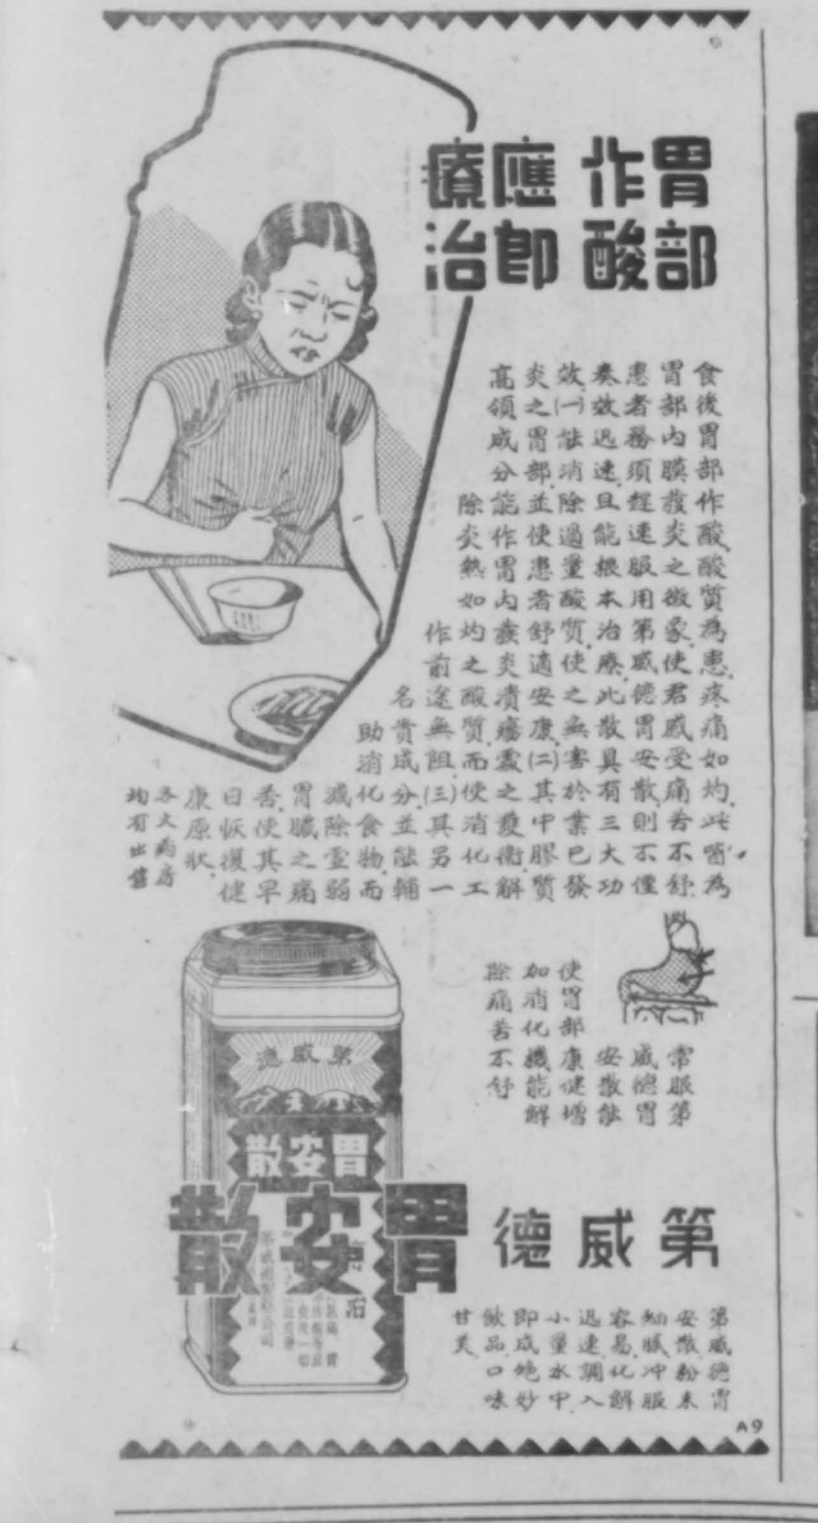 胃部
作酸
應即
療治
食後胃部作酸、酸質為患、疼痛如灼、此唨為
胃部內膜發炎之徵象、使君感受痛苦不舒、
患者務須趕速服用第威德胃安散、則不僅
奏效迅速、且能根本治療、此散具有三大功
效、(一)能消除過量酸質、使之無害於業已發
炎之胃部、並使患者舒適安康、(二)其中膠質
高領成分能作胃內發炎潰瘍處之護衛、解
除炎熱如灼之酸質、而使消化工
作前途無阻、(三)具另一
名貴成分、並能輔
助消化食物、而
減除虛弱
胃臟之痛
苦、使其早
日恢復健
康原狀、
各大藥房
均有出售
常服第
威德胃
安散能
使胃部康健增
加消化機能解
除痛苦不舒
第威德
胃安散
第威德
胃安散
第威德胃
安散粉末
細膩冲服
容易、化解
迅速、調入
小量水中、
即成絕妙
飲品口味
甘美、
A9